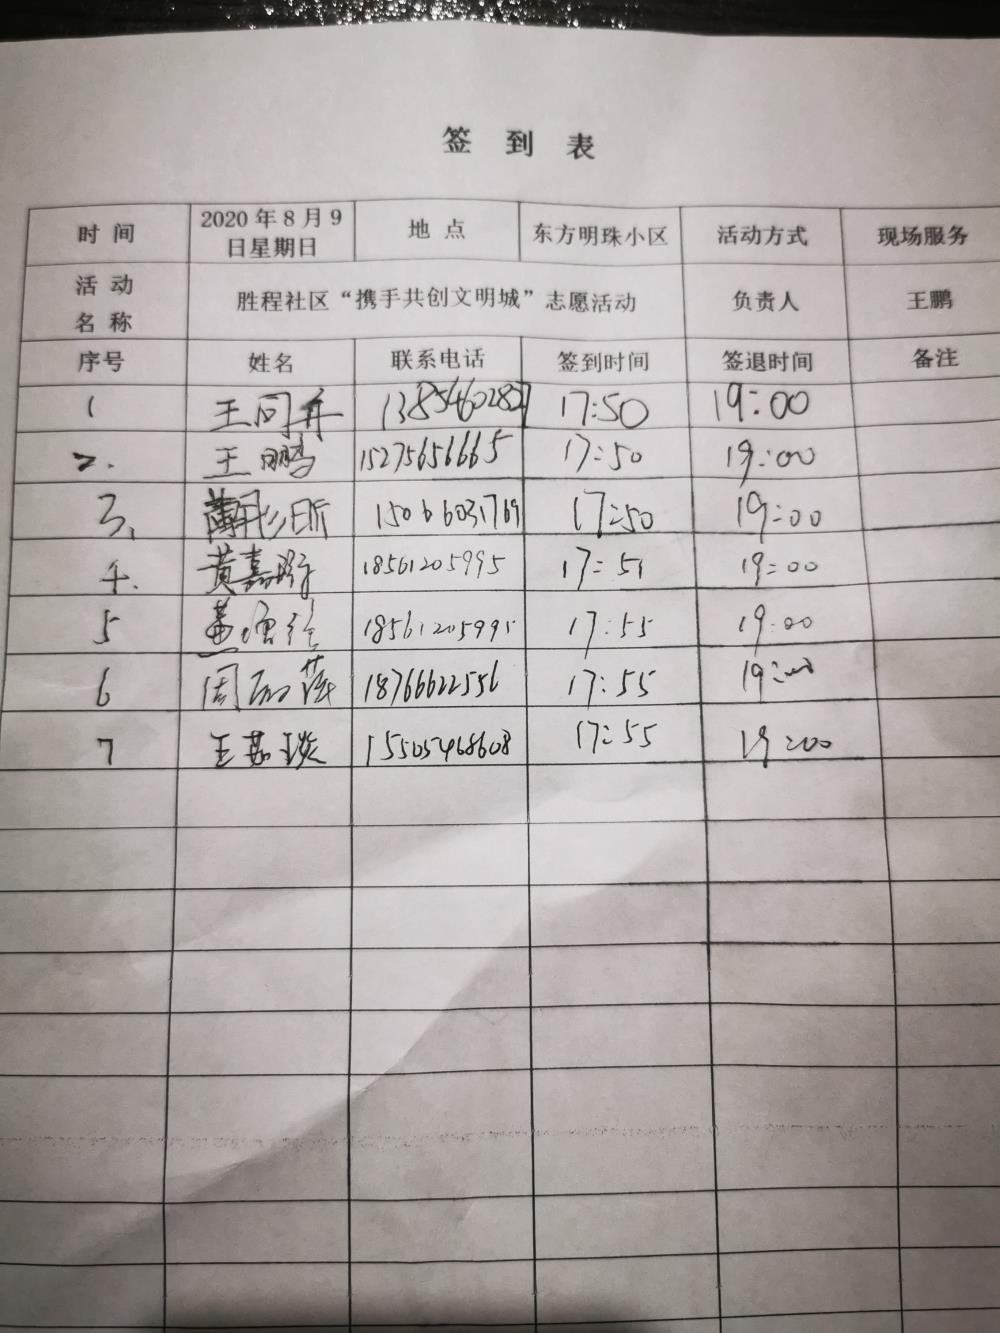 签 到 表
时 间 2020 年 8 月 9 日星期日 地 点 东方明珠小区 活动方式 现场服务
活 动 名 称 胜程社区“携手共创文明城”志愿活动 负责人 王鹏
序号 姓名 联系电话 签到时间 签退时间 备注
1 王同 17:50 19:00
2. 王鹏 15275656665 17:50 19:00
3、 15066031769 17:50 19:00
4. 黄嘉 18561205995 17:51 19:00
5 18561205995 17:55 19:00
6 周 18766622556 17:55 19:00
7 王 15505468608 17:55 19:00